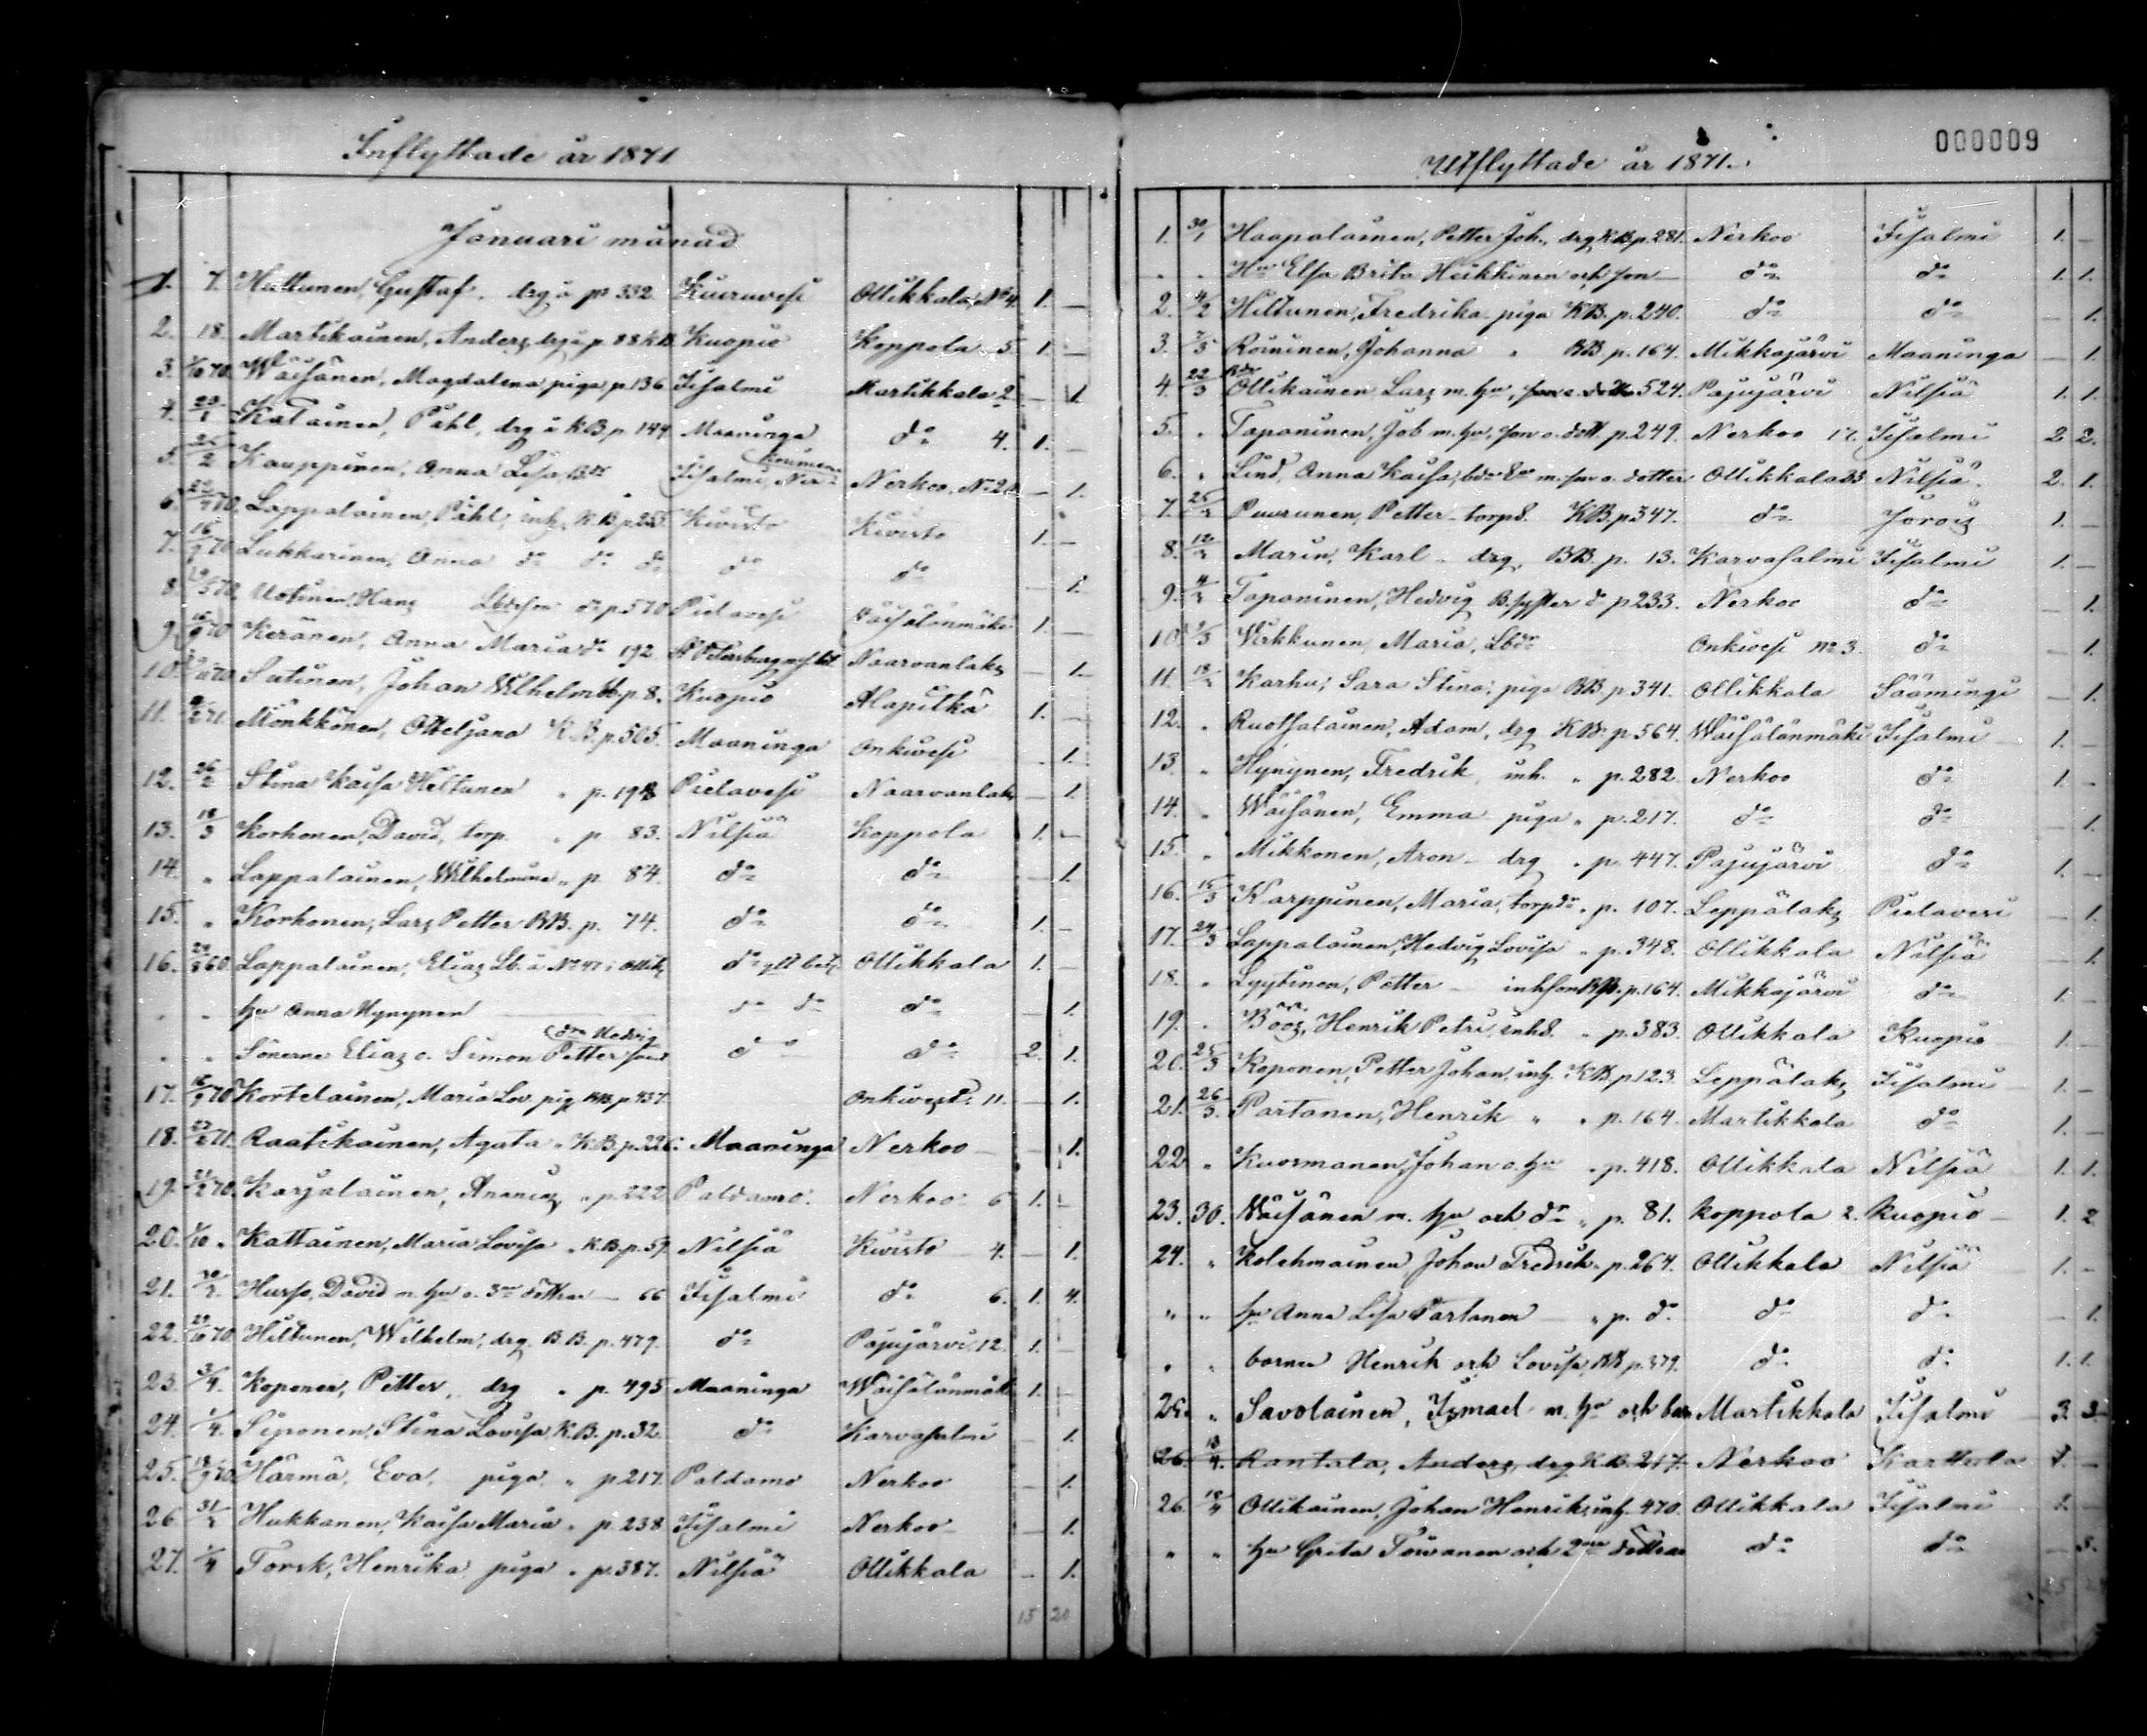 Inflyttade år 1871
Januari månad
1. 7. Huttunen, Gustaf, drg å p. 332. Kiuruvesi Ollikkala, No 4. 1. —
2. 18. Martikainen, Anders drg å p. 88 KB. Kuopio Koppola 5 1. —
3. 70. Wäisänen, Magdalena piga p. 136 Iisalmi Martikkala 2 — 1.
4. Katainen, Påhl, drg å KB. p. 144 Maaninga do 4. 1. —
5. Kauppinen, Anna Lisa Iisalmi Nerkoo, No 20 — 1.
6. 70. Lappalainen, Påhl, inh. KB. p. 255. Kivisto Kivisto 1. —
7. 16/9 70 Lukkarinen, Anna do do do do do — 1.
8. 70. Uotinen, Hans do p. 570 Pielavesi Väisälänmäki 1. —
9. 70 Keränen, Anna Maria do 192 St Petersburg Naarvanlaks — 1.
10. 70 Sutinen, Johan Wilhelm p. 8. Kuopio Alapitkä 1. —
11. 71. Mönkkönen, Otteljana K.B. p. 505. Maaninga Onkivesi — 1.
12. 26/2 Stina Kaisa Hiltunen " p. 198 Pielavesi Naarvanlaks — 1.
13. 18/3 Korhonen, David, torp. " p. 83. Nilsiä Koppola 1. —
14. " Lappalainen, Wilhelmina " p. 84. do do — 1.
15. " Korhonen, Lars Petter BB. p. 74. do do 1. —
16. 60. Lappalainen, Elias Lb. å No 47 i Ollik. do Ollikkala 1. —
" " hu Anna Hynynen do do do — 1.
dr Hedvig
" " Sönerne Elias o. Simon Petter do do 2. 1.
17. 70 Kortelainen, Maria Lov. pig BB. p. 437. Onkivesi 11. — 1.
18. 71. Raatikainen, Agata " KB. p. 226. Maaninga Nerkoo — 1.
19. 70. Karjalainen, Ananias " p. 222 Paldamo. Nerkoo 6 1. —
20. 1/10 " Kattainen, Maria Lovisa " K.B. p. 59. Nilsiä Kivisto 4. — 1.
21. Husso, David m. hu o. 3ne döttrar — 66 Iisalmi do 6. 1. 4.
22. 29/10 70 Hiltunen, Wilhelm, drg. BB. p. 479. do Pajujärvi 12. 1. —
23. 3/4. Koponen, Petter, drg " p. 495 Maaninga Wäisälänmäki 1. —
24. 1/4. Siponen, Stina Lovisa K.B. p. 32. do Karvasalmi — 1.
25. 18/9 70 Härmä, Eva, piga " p. 217. Paldamo Nerkoo — 1.
26. Hukkanen, Kaisa Maria " p. 238 Iisalmi Nerkoo — 1.
27. 1/4 Torsk, Henrika piga " p. 387. Nilsiä Ollikkala — 1.
15 20
000009
Utflyttade år 1871.
1. 30/1 Haapalainen, Petter Joh., drg KB p. 281. Nerkoo Iisalmi 1. —
" " Hu Elsa Brita Heikkinen och son — do do 1. 1.
2. 4/2 Hiltunen, Fredrika piga KB. p. 240. do do — 1.
3. 7/3 Roininen, Johanna " BB p. 164. Mikkajärvi Maaninga — 1.
4. 22/3 Ollikainen Lars m. hu, 524. Pajujärvi Nilsiä 1. 1.
5. " Taponinen, Job m. hu, son o. dott. p. 249. Nerkoo 17. Iisalmi 2 2.
6. " Lind, Anna Kaisa, m. son o. dotter Ollikkala 33 Nilsiä. 2. 1.
7. Puurunen, Petter torps. KB. p. 347. do Jorois 1. —
8. Marin, Karl drg. BB. p. 13. Karvasalmi Iisalmi 1. —
9. Taponinen, Hedvig B. syster do p. 233. Nerkoo do — 1.
10. Wirkkunen, Maria, Lbdr Onkivesi No 3. do — 1.
11. Karhu, Sara Stina, piga BB. p. 341. Ollikkala Säämingi — 1.
12. " Ruotsalainen, Adam, drg KB. p. 564. Wäisälänmäki Iisalmi 1. —
13. " Hynynen, Fredrik, inh. " p. 282. Nerkoo do 1. —
14. " Wäisänen, Emma piga " p. 217. do do — 1.
15. " Mikkonen, Aron drg " p. 447. Pajujärvi do 1. —
16. 15/3 Karppinen, Maria, torpdr " p. 107. Leppälaks Pielavesi — 1.
17. 24/3 Lappalainen, Hedvig Lovisa " p. 348. Ollikkala Nilsiä — 1.
18. " Lyytinen, Petter — inhson BB. p. 164. Mikkajärvi do 1. —
19. " Böös, Henrik Petri inhs. " p. 383. Ollikkala Kuopio 1. —
20. 25/3 Koponen, Petter Johan, inh. KB. p. 123. Leppälaks Iisalmi 1. —
21. 26/3. Partanen, Henrik " " p. 164. Martikkala do 1. —
22. " Kuosmanen, Johan o. hu " p. 418. Ollikkala Nilsiä 1. 1.
23. 30. Wäisänen m. hu och dr " p. 81. Koppola 2. Kuopio 1. 2
24. " Kolehmainen Johan Fredrik " p. 264. Ollikkala Nilsiä 1. —
" " hu Anna Lisa Partanen — " p. do do do — 1.
" " barnen Henrik och Lovisa, BB p. 379. do do 1. 1.
25. " Savolainen, Ismael m. hu och barn Martikkala Iisalmi 3. 3
26. 13/4. Rantala, Anders, drg K.B. 217. Nerkoo Karttula 1. —
26. 18/4 Ollikainen, Johan Henrik, inh. 470. Ollikkala Iisalmi 1. —
" " hu Greta Toivanen och 2ne döttrar do do — 3.